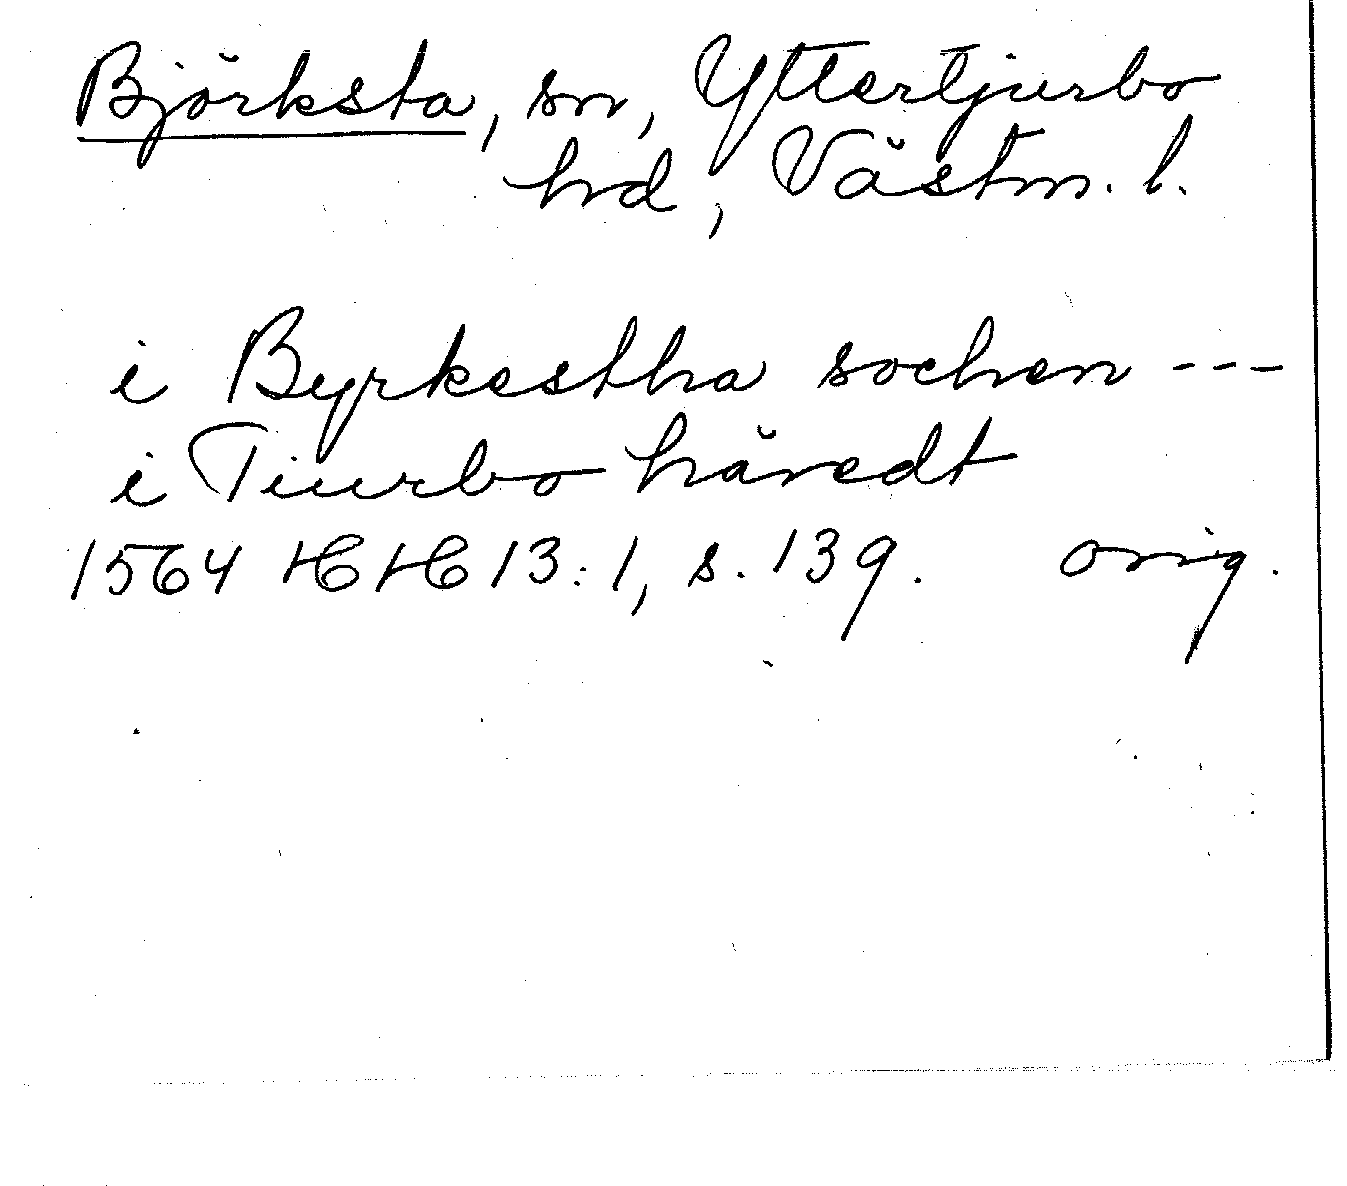 Björksta, sn, Yttertjurbo
hd, Västm. l.
i Byrkestha sochen ---
i Tiurbo häredt
1564 HH 13:1, s. 139. orig.